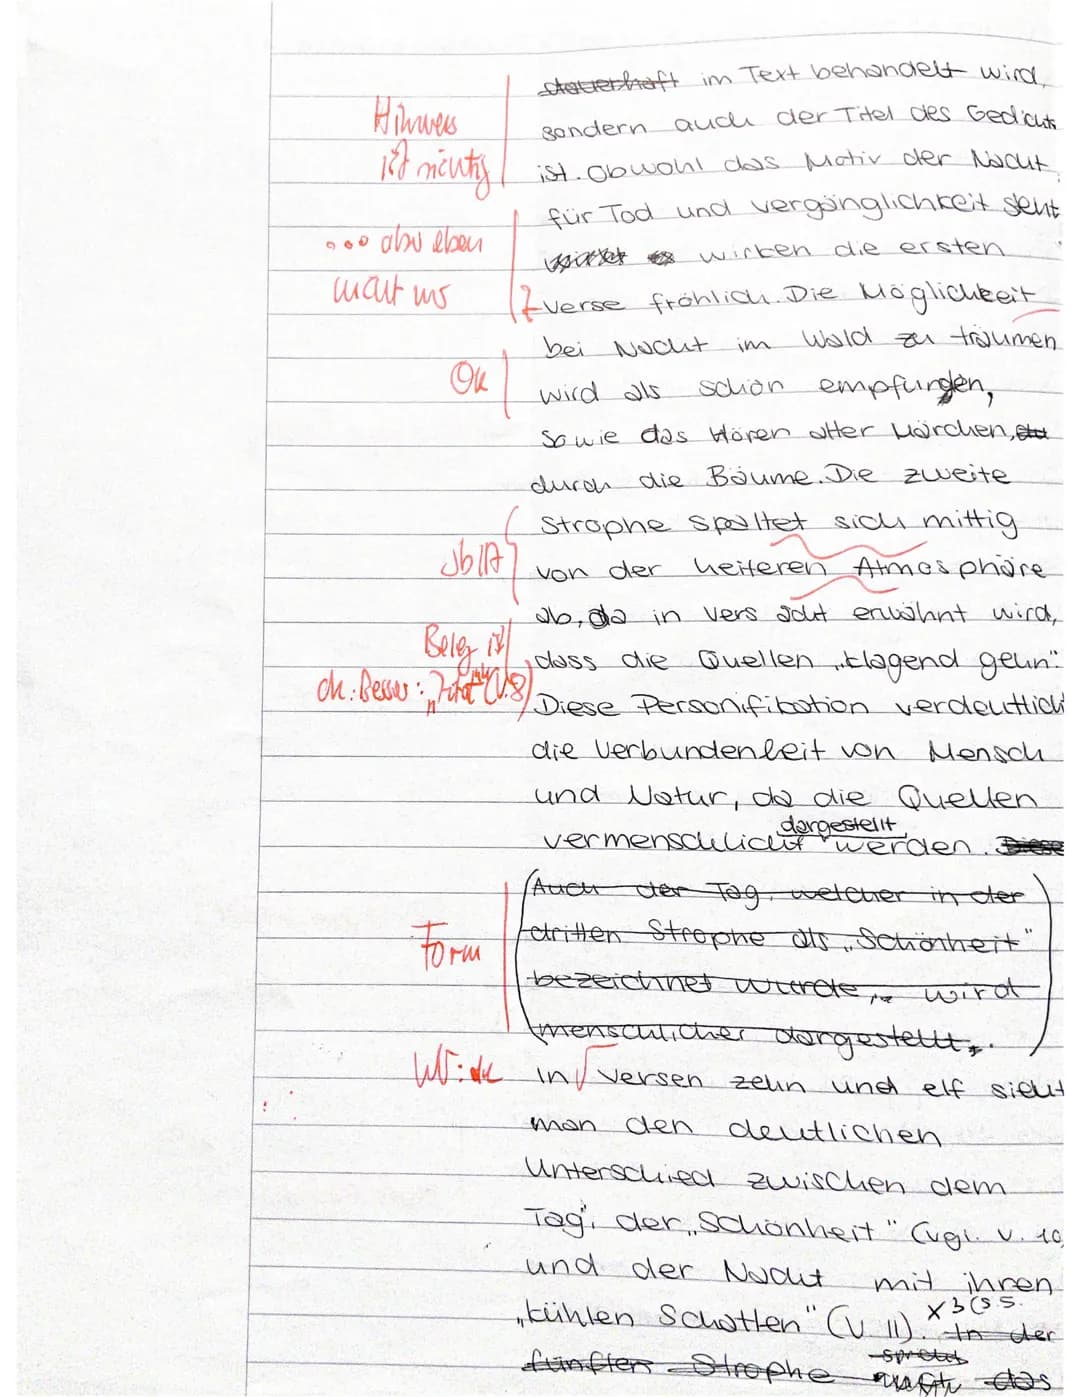 dauerhaft im Text behandelt wird,
Hinweis
sondern auch der Titel des Gedichts
ist richtig
ist. Obwohl das Motiv der Nacht
für Tod und vergänglichkeit steht
... aber eben
wirken die ersten
nicht nur
7 verse fröhlich. Die Möglichkeit
bei Nacht im Wald zu träumen
Ok
wird als schön empfunden,
sowie das Hören alter Märchen,
durch die Bäume. Die zweite
Strophe spaltet sich mittig
von der heiteren Atmosphäre
ab, da in vers acht erwähnt wird,
Beleg ist
dass die Quellen „klagend gehn".
ok. Besser: „Zitat" (V.8)
Diese Personifikation verdeutlich
die Verbundenheit von Mensch
und Natur, da die Quellen
dargestellt
vermenschlicht werden. Diese
(Auch der Tag, welcher in der
Form
dritten Strophe als „Schönheit"
bezeichnet wurde, wird
menschlicher dargestellt.)
in √ versen zehn und elf sieht
man den deutlichen
Unterschied zwischen dem
Tag, der „Schönheit" (vgl. v. 10
und der Nacht mit ihren
„kühlen Schatten" (V. 11). In der
x3 (S 5.
fünften Strophe das